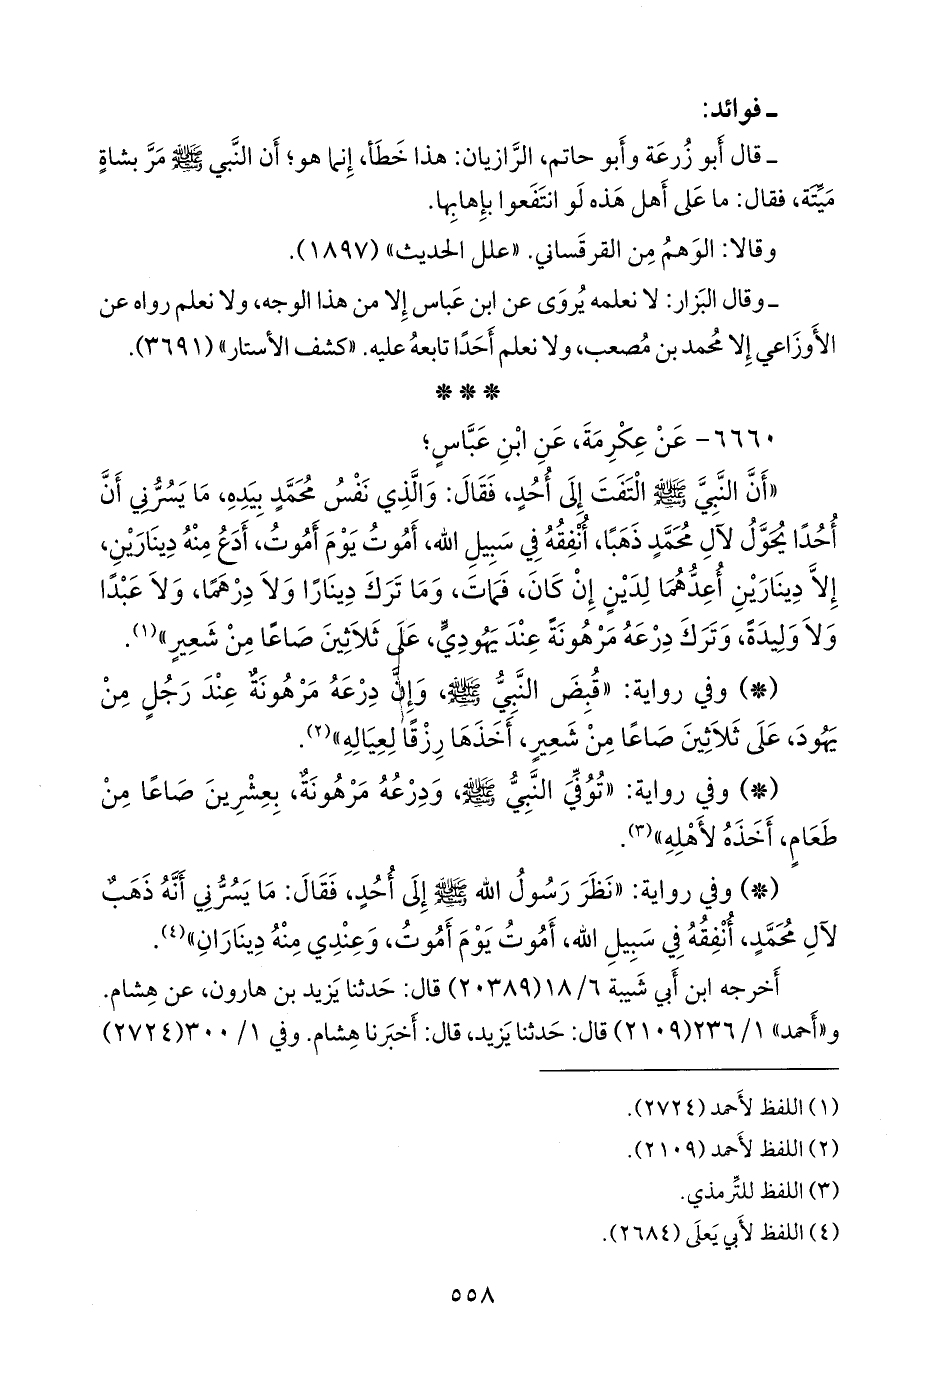 ـ فوائد:
ـ قال أَبو زُرعَة وأَبو حاتم، الرَّازيان: هذا خَطَأ، إِنما هو؛ أَن النَّبي ﷺ مَرَّ بشاةٍ
مَيِّتَة، فقال: ما عَلى أَهل هَذه لَو انتَفَعوا بإِهابِها.
وقالا: الوَهمُ مِن القرقَساني. «علل الحديث» (١٨٩٧).
ـ وقال البَزار: لا نعلمه يُروَى عن ابن عَباس إِلا من هذا الوجه، ولا نعلم رواه عن
الأَوزَاعي إِلا مُحمد بن مُصعب، ولا نعلم أَحَدًا تابعهُ عليه. «كشف الأستار» (٣٦٩١).
* * *
٦٦٦٠- عَنْ عِكْرِمَةَ، عَنِ ابْنِ عَبَّاسٍ؛
«أَنَّ النَّبِيَّ ﷺ الْتَفَتَ إِلَى أُحُدٍ، فَقَالَ: وَالَّذِي نَفْسُ مُحَمَّدٍ بِيَدِهِ، مَا يَسُرُّنِي أَنَّ
أُحُدًا يُحَوَّلُ لآلِ مُحَمَّدٍ ذَهَبًا، أُنْفِقُهُ فِي سَبِيلِ الله، أَمُوتُ يَوْمَ أَمُوتُ، أَدَعُ مِنْهُ دِينَارَيْنِ،
إِلاَّ دِينَارَيْنِ أُعِدُّهُمَا لِدَيْنٍ إِنْ كَانَ، فَمَاتَ، وَمَا تَرَكَ دِينَارًا وَلاَ دِرْهَمًا، وَلاَ عَبْدًا
وَلاَ وَلِيدَةً، وَتَرَكَ دِرْعَهُ مَرْهُونَةً عِنْدَ يَهُودِيٍّ، عَلَى ثَلاَثِينَ صَاعًا مِنْ شَعِيرٍ»(١).
(*) وفي رواية: «قُبِضَ النَّبِيُّ ﷺ، وَإِنَّ دِرْعَهُ مَرْهُونَةٌ عِنْدَ رَجُلٍ مِنْ
يَهُودَ، عَلَى ثَلاَثِينَ صَاعًا مِنْ شَعِيرٍ، أَخَذَهَا رِزْقًا لِعِيَالِهِ»(٢).
(*) وفي رواية: «تُوُفِّيَ النَّبِيُّ ﷺ، وَدِرْعُهُ مَرْهُونَةٌ، بِعِشْرِينَ صَاعًا مِنْ
طَعَامٍ، أَخَذَهُ لأَهْلِهِ»(٣).
(*) وفي رواية: «نَظَرَ رَسُولُ الله ﷺ إِلَى أُحُدٍ، فَقَالَ: مَا يَسُرُّنِي أَنَّهُ ذَهَبٌ
لآلِ مُحَمَّدٍ، أُنْفِقُهُ فِي سَبِيلِ الله، أَمُوتُ يَوْمَ أَمُوتُ، وَعِنْدِي مِنْهُ دِينَارَانِ»(٤).
أَخرجه ابن أَبي شَيبة ٦/ ١٨(٢٠٣٨٩) قال: حَدثنا يَزيد بن هارون، عن هِشام.
و«أَحمد» ١/ ٢٣٦(٢١٠٩) قال: حَدثنا يَزيد، قال: أَخبَرنا هِشام. وفي ١/ ٣٠٠(٢٧٢٤)
(١) اللفظ لأَحمد (٢٧٢٤).
(٢) اللفظ لأَحمد (٢١٠٩).
(٣) اللفظ للتِّرمذي.
(٤) اللفظ لأَبي يَعلَى (٢٦٨٤).
٥٥٨